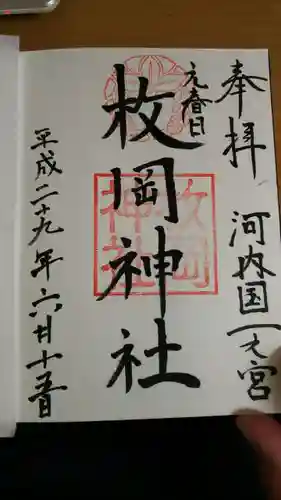 奉拝
河内国一之宮
元春日
枚岡神社
枚岡神社
平成二十九年六月十五日